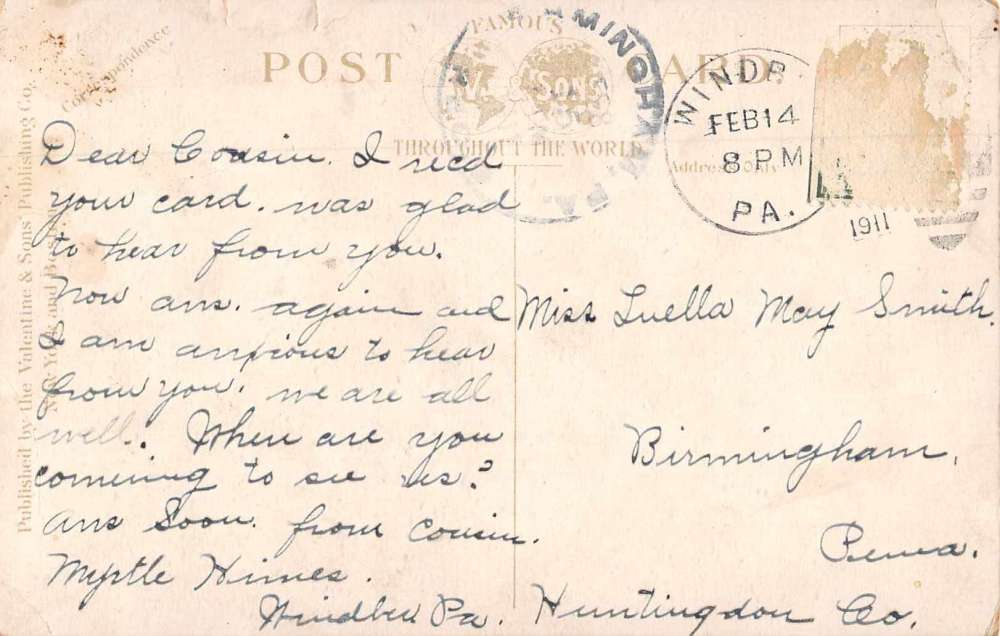 FAMOUS
POST CARD
& SONS
THROUGHOUT THE WORLD
Correspondence
Address Only
Published by the Valentine & Sons' Publishing Co.
New York and Boston
BIRMINGHAM
PA.
WINDB
FEB 14
8 PM
PA.
1911
Dear Cousin. I recd
your card. was glad
to hear from you.
Now ans. again and
I am anxious to hear
from you. we are all
well. When are you
comeing to see us?
Ans Soon. from cousin.
Myrtle Himes.
Windber Pa.
Miss Luella May Smith.
Birmingham,
Penna.
Huntingdon Co.